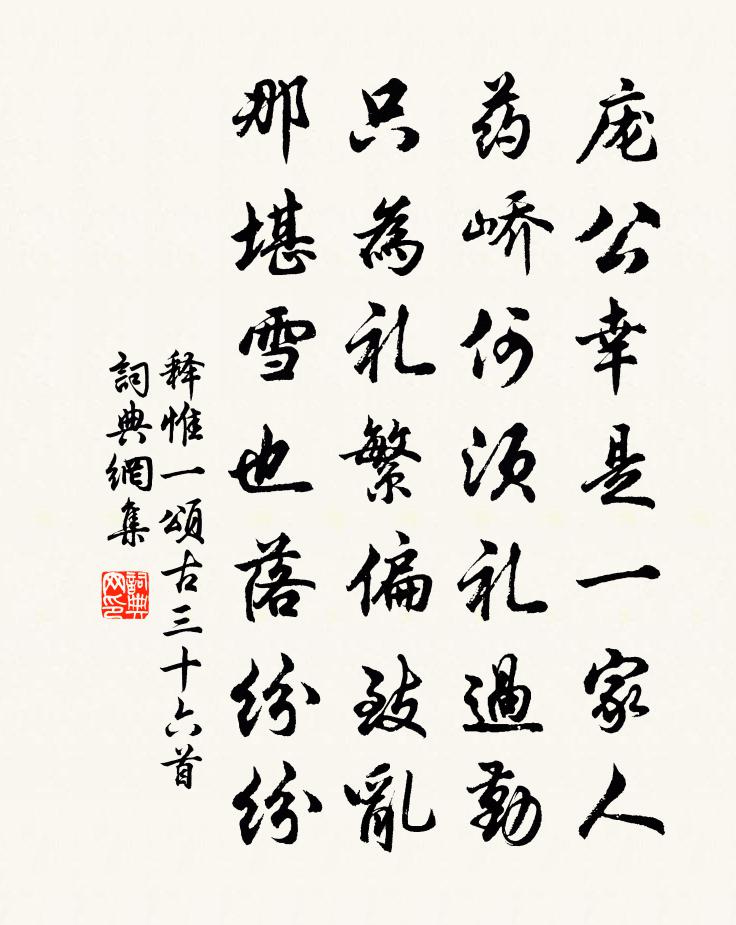 庞公幸是一家人
药峤何须礼過勤
只為礼繁偏致亂
那堪雪也落紛紛
释惟一頌古三十六首
詞典網集
詞典网印